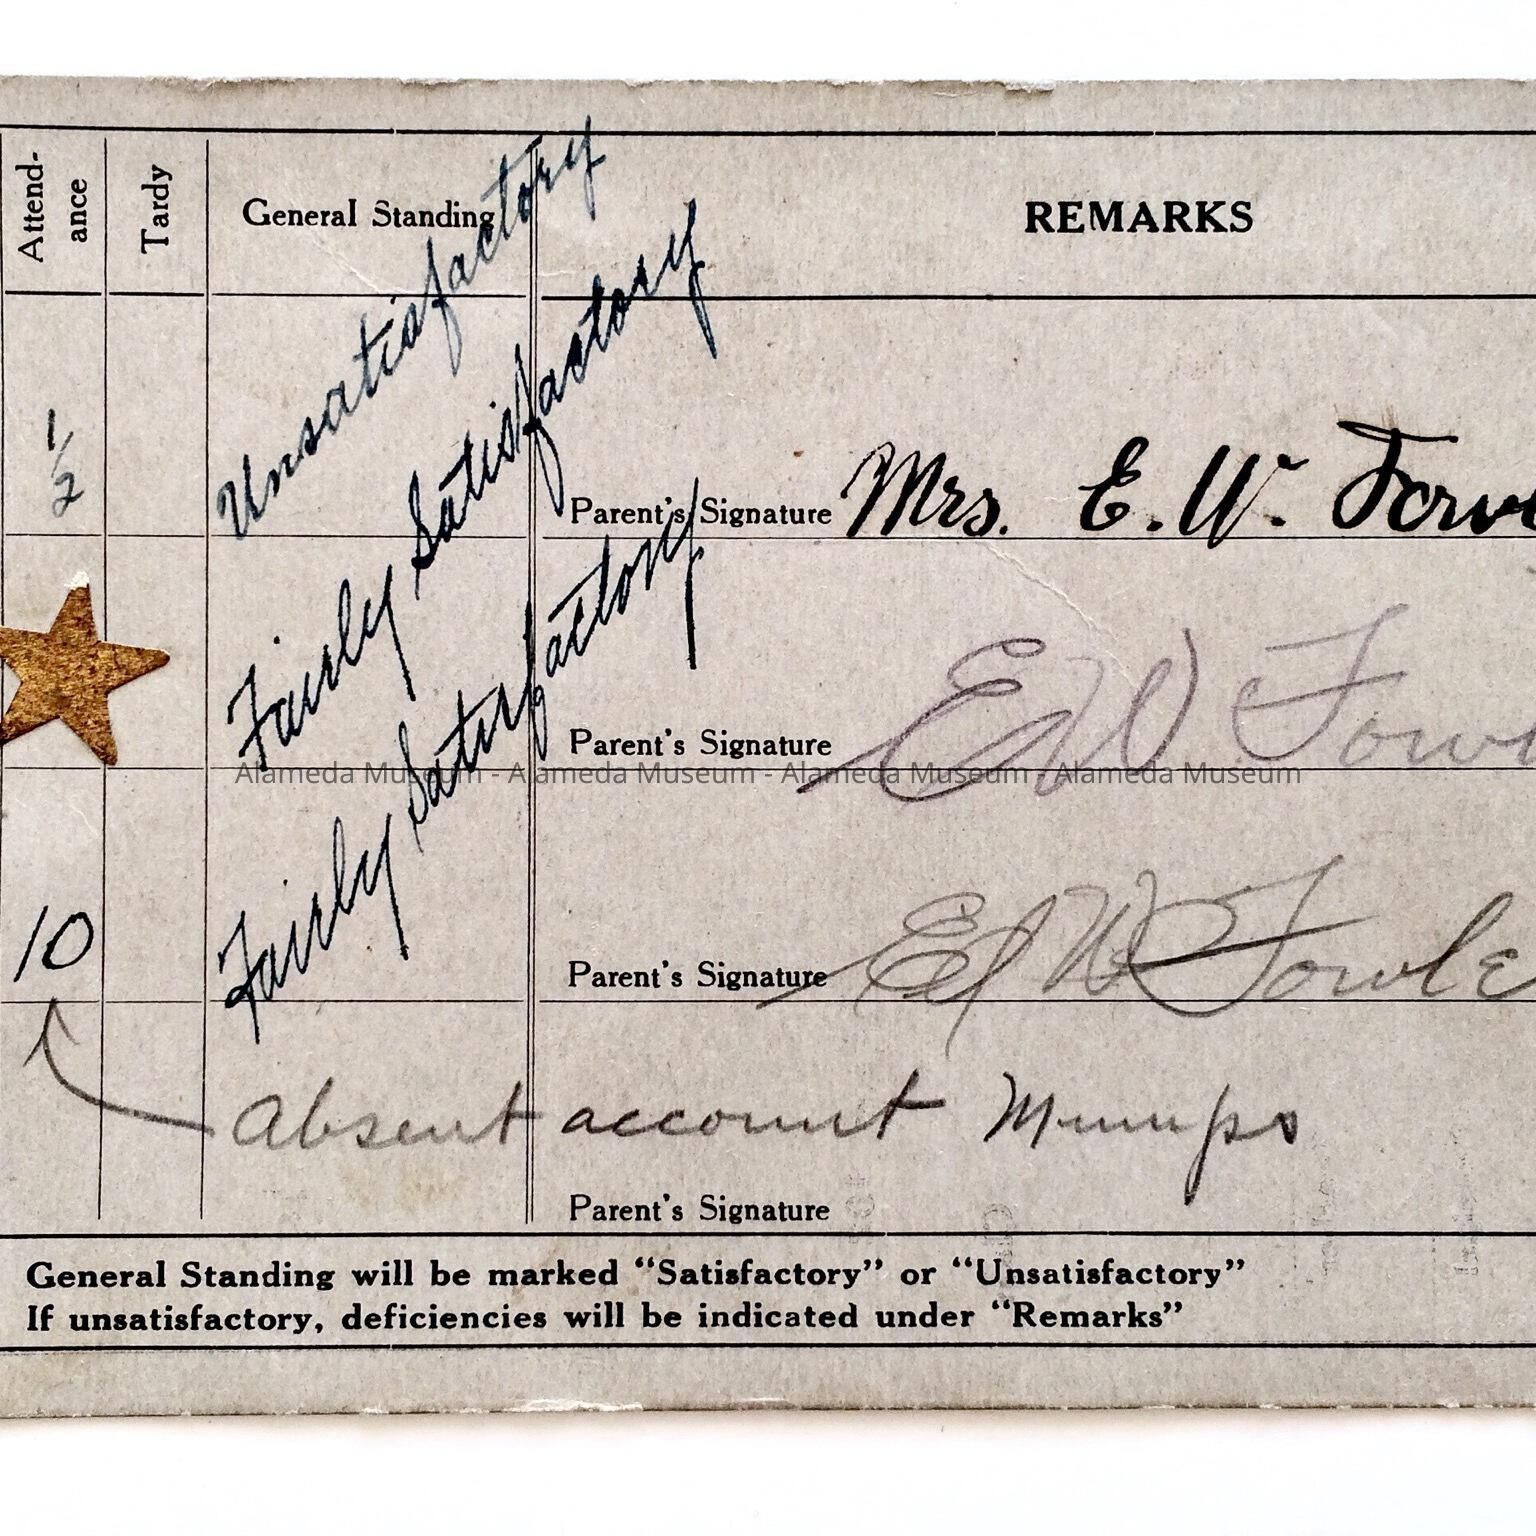 Attend-
ance
Tardy
General Standing
REMARKS
1/2
Unsatisfactory
Parent's Signature Mrs. E. W.
Fairly Satisfactory
Parent's Signature E W
Alameda Museum - Alameda Museum - Alameda Museum - Alameda Museum
10
Fairly Satisfactory
Parent's Signature Ed W Fowle
Absent account Mumps
Parent's Signature
General Standing will be marked “Satisfactory” or “Unsatisfactory”
If unsatisfactory, deficiencies will be indicated under “Remarks”